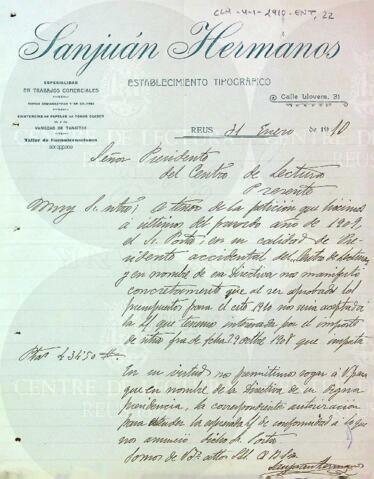 CLR-4-1-1910-ENT, 22
Sanjuán Hermanos
ESPECIALIDAD
EN TRABAJOS COMERCIALES
ESTABLECIMIENTO TIPOGRÁFICO
Calle Llovera, 31
VARIEDAD DE TARJETAS
Taller de Encuadernaciones
REUS 31 Enero de 1910
Señor Presidente
del Centro de Lectura
Presente
Muy Sr. ntro: A tenor de la petición que hicimos
a últimos del pasado año de 1909,
el Sr. Porta, en su calidad de Pre-
sidente accidental del Centro de Lectura,
y en nombre de su Directiva nos manifestó
concretamente que al ser aprobados los
presupuestos para el año 1910 nos sería aceptada
la que tenemos por el importe
de ntra fra de fecha 29 octbre 1908 que importa
Ptas 434'50
En su virtud nos permitimos rogar a V.
que en nombre de la Directiva de su digna
presidencia, la correspondiente autorización
para extender la de conformidad a lo que
nos anunció dicho Sr. Porta
Somos de Vd.
Sanjuan Hermanos
CENTRE DE LECTURA
REUS